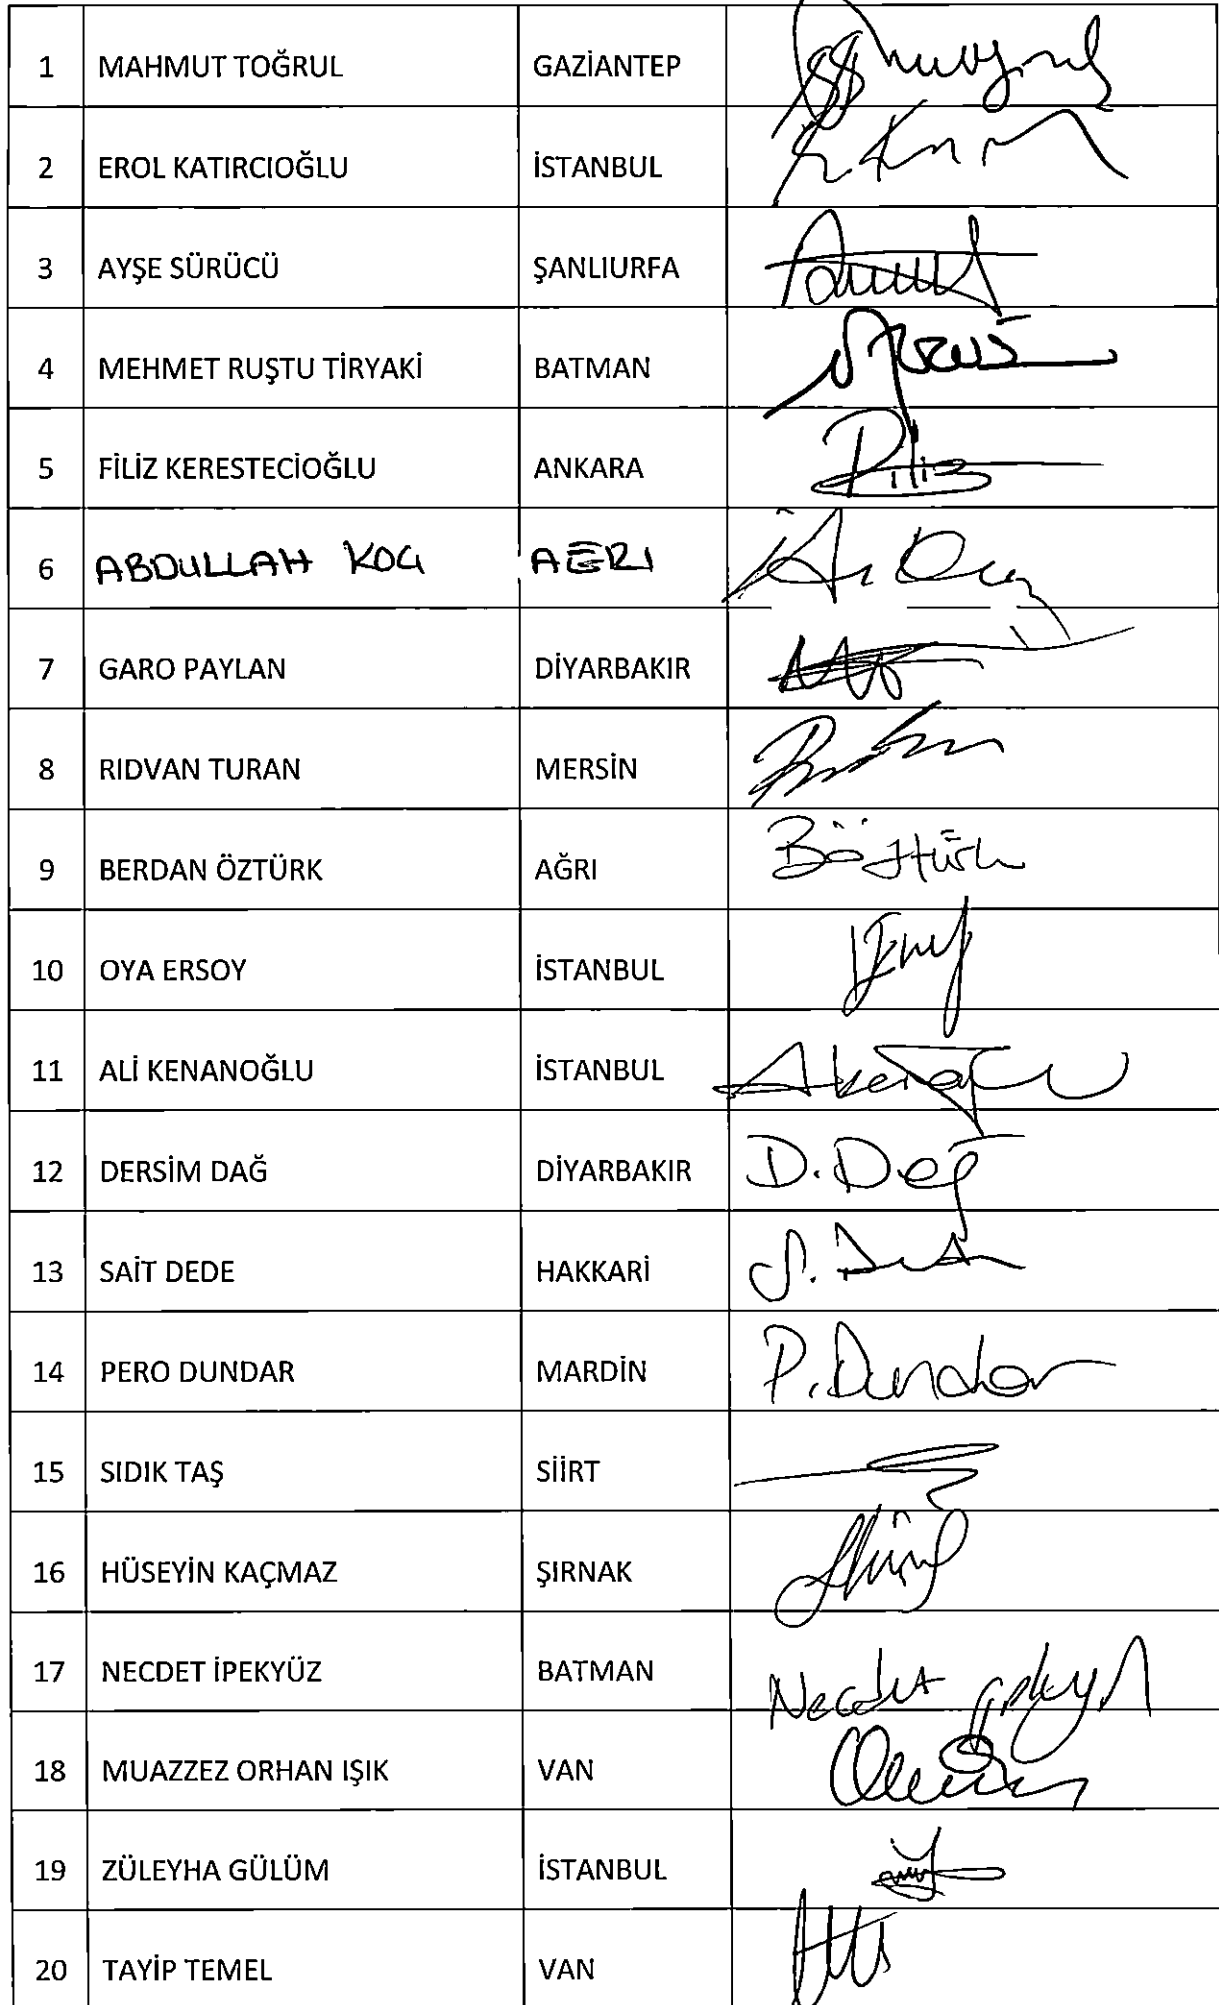 1 MAHMUT TOĞRUL GAZİANTEP
2 EROL KATIRCIOĞLU İSTANBUL
3 AYŞE SÜRÜCÜ ŞANLIURFA
4 MEHMET RUŞTU TİRYAKİ BATMAN
5 FİLİZ KERESTECİOĞLU ANKARA Filiz
6 ABDULLAH KOÇ AĞRI
7 GARO PAYLAN DİYARBAKIR
8 RIDVAN TURAN MERSİN
9 BERDAN ÖZTÜRK AĞRI
10 OYA ERSOY İSTANBUL
11 ALİ KENANOĞLU İSTANBUL
12 DERSİM DAĞ DİYARBAKIR D. Dağ
13 SAİT DEDE HAKKARİ
14 PERO DUNDAR MARDİN P. Dundar
15 SIDIK TAŞ SİİRT
16 HÜSEYİN KAÇMAZ ŞIRNAK
17 NECDET İPEKYÜZ BATMAN Necdet
18 MUAZZEZ ORHAN IŞIK VAN
19 ZÜLEYHA GÜLÜM İSTANBUL
20 TAYİP TEMEL VAN